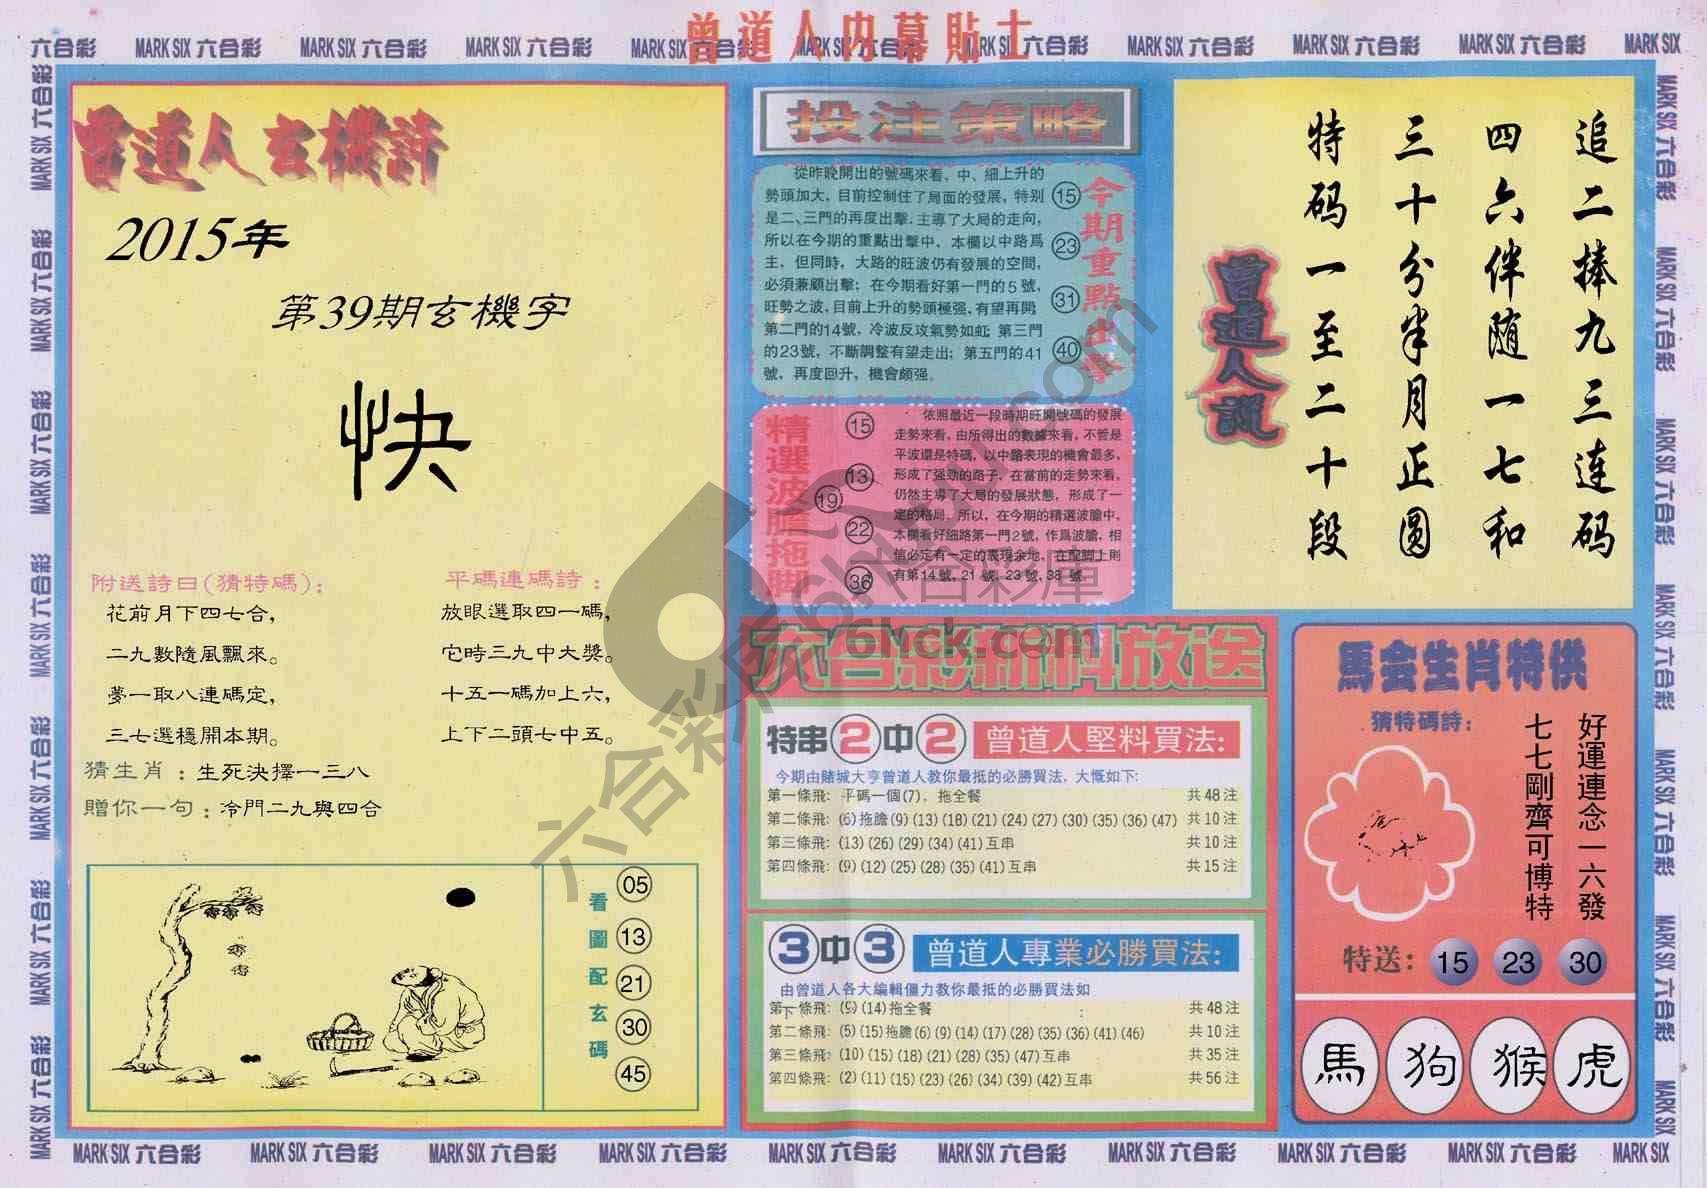 曾道人内幕貼士
六合彩 MARK SIX 六合彩 MARK SIX 六合彩 MARK SIX 六合彩 MARK SIX 六合彩 MARK SIX 六合彩 MARK SIX 六合彩 MARK SIX 六合彩 MARK SIX 六合彩 MARK SIX 六合彩 MARK SIX
曾道人玄機詩
2015年
第39期玄機字
快
附送詩曰(猜特碼):
花前月下四七合,
二九數隨風飄來。
夢一取八連碼定,
三七選穩開本期。
平碼連碼詩:
放眼選取四一碼,
它時三九中大獎。
十五一碼加上六,
上下二頭七中五。
猜生肖:生死決擇一三八
贈你一句:冷門二九與四合
看圖配玄碼
05
13
21
30
45
投注策略
從昨晚開出的號碼來看、中、細上升的
勢頭加大,目前控制住了局面的發展,特别
是二、三門的再度出擊,主導了大局的走向,
所以在今期的重點出擊中,本欄以中路爲
主,但同時,大路的旺波仍有發展的空間,
必須兼顧出擊;在今期看好第一門的5號,
旺勢之波,目前上升的勢頭極强,有望再開;
第二門的14號,冷波反攻氣勢如虹;第三門
的23號,不斷調整有望走出;第五門的41
號,再度回升,機會頗强。
今期重點出擊
15
23
31
40
精選波膽拖脚
15
13
19
22
36
依照最近一段時期旺開號碼的發展
走勢來看,由所得出的數據來看,不管是
平波還是特碼,以中路表現的機會最多,
形成了强勁的路子,在當前的走勢來看,
仍然主導了大局的發展狀態,形成了一
定的格局,所以,在今期的精選波膽中,
本欄看好細路第一門2號,作爲波膽,相
信必定有一定的表現余地,在配脚上則
有第14號,21號,23號,38號
六合彩新料放送
特串2中2 曾道人堅料買法:
今期由賭城大亨曾道人教你最抵的必勝買法,大慨如下:
第一條飛:平碼一個(7),拖全餐 共48注
第二條飛:(6)拖膽(9)(13)(18)(21)(24)(27)(30)(35)(36)(47) 共10注
第三條飛:(13)(26)(29)(34)(41)互串 共10注
第四條飛:(9)(12)(25)(28)(35)(41)互串 共15注
3中3 曾道人專業必勝買法:
由曾道人各大編輯僵力教你最抵的必勝買法如下:
第一條飛:(9)(14)拖全餐 共48注
第二條飛:(5)(15)拖膽(6)(9)(14)(17)(28)(35)(36)(41)(46) 共10注
第三條飛:(10)(15)(18)(21)(28)(35)(47)互串 共35注
第四條飛:(2)(11)(15)(23)(26)(34)(39)(42)互串 共56注
追二捧九三连码
四六伴随一七和
三十分半月正圆
特码一至二十段
曾道人説
馬会生肖特供
猜特碼詩:
好運連念一六發
七七剛齊可博特
特送: 15 23 30
馬 狗 猴 虎
六合彩库 6hck.com
六合彩庫
6hck.com
MARK SIX 六合彩 MARK SIX 六合彩 MARK SIX 六合彩 MARK SIX 六合彩 MARK SIX 六合彩 MARK SIX 六合彩 MARK SIX 六合彩 MARK SIX 六合彩 MARK SIX 六合彩 MARK SIX